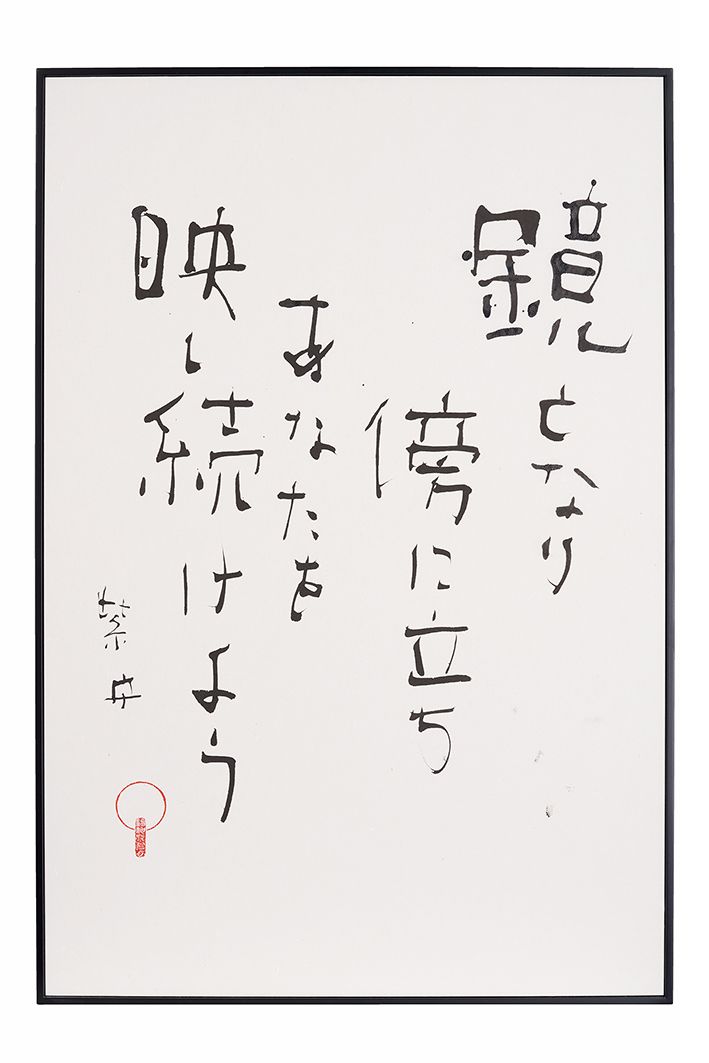 鏡となり
傍に立ち
あなたを
映し続けよう